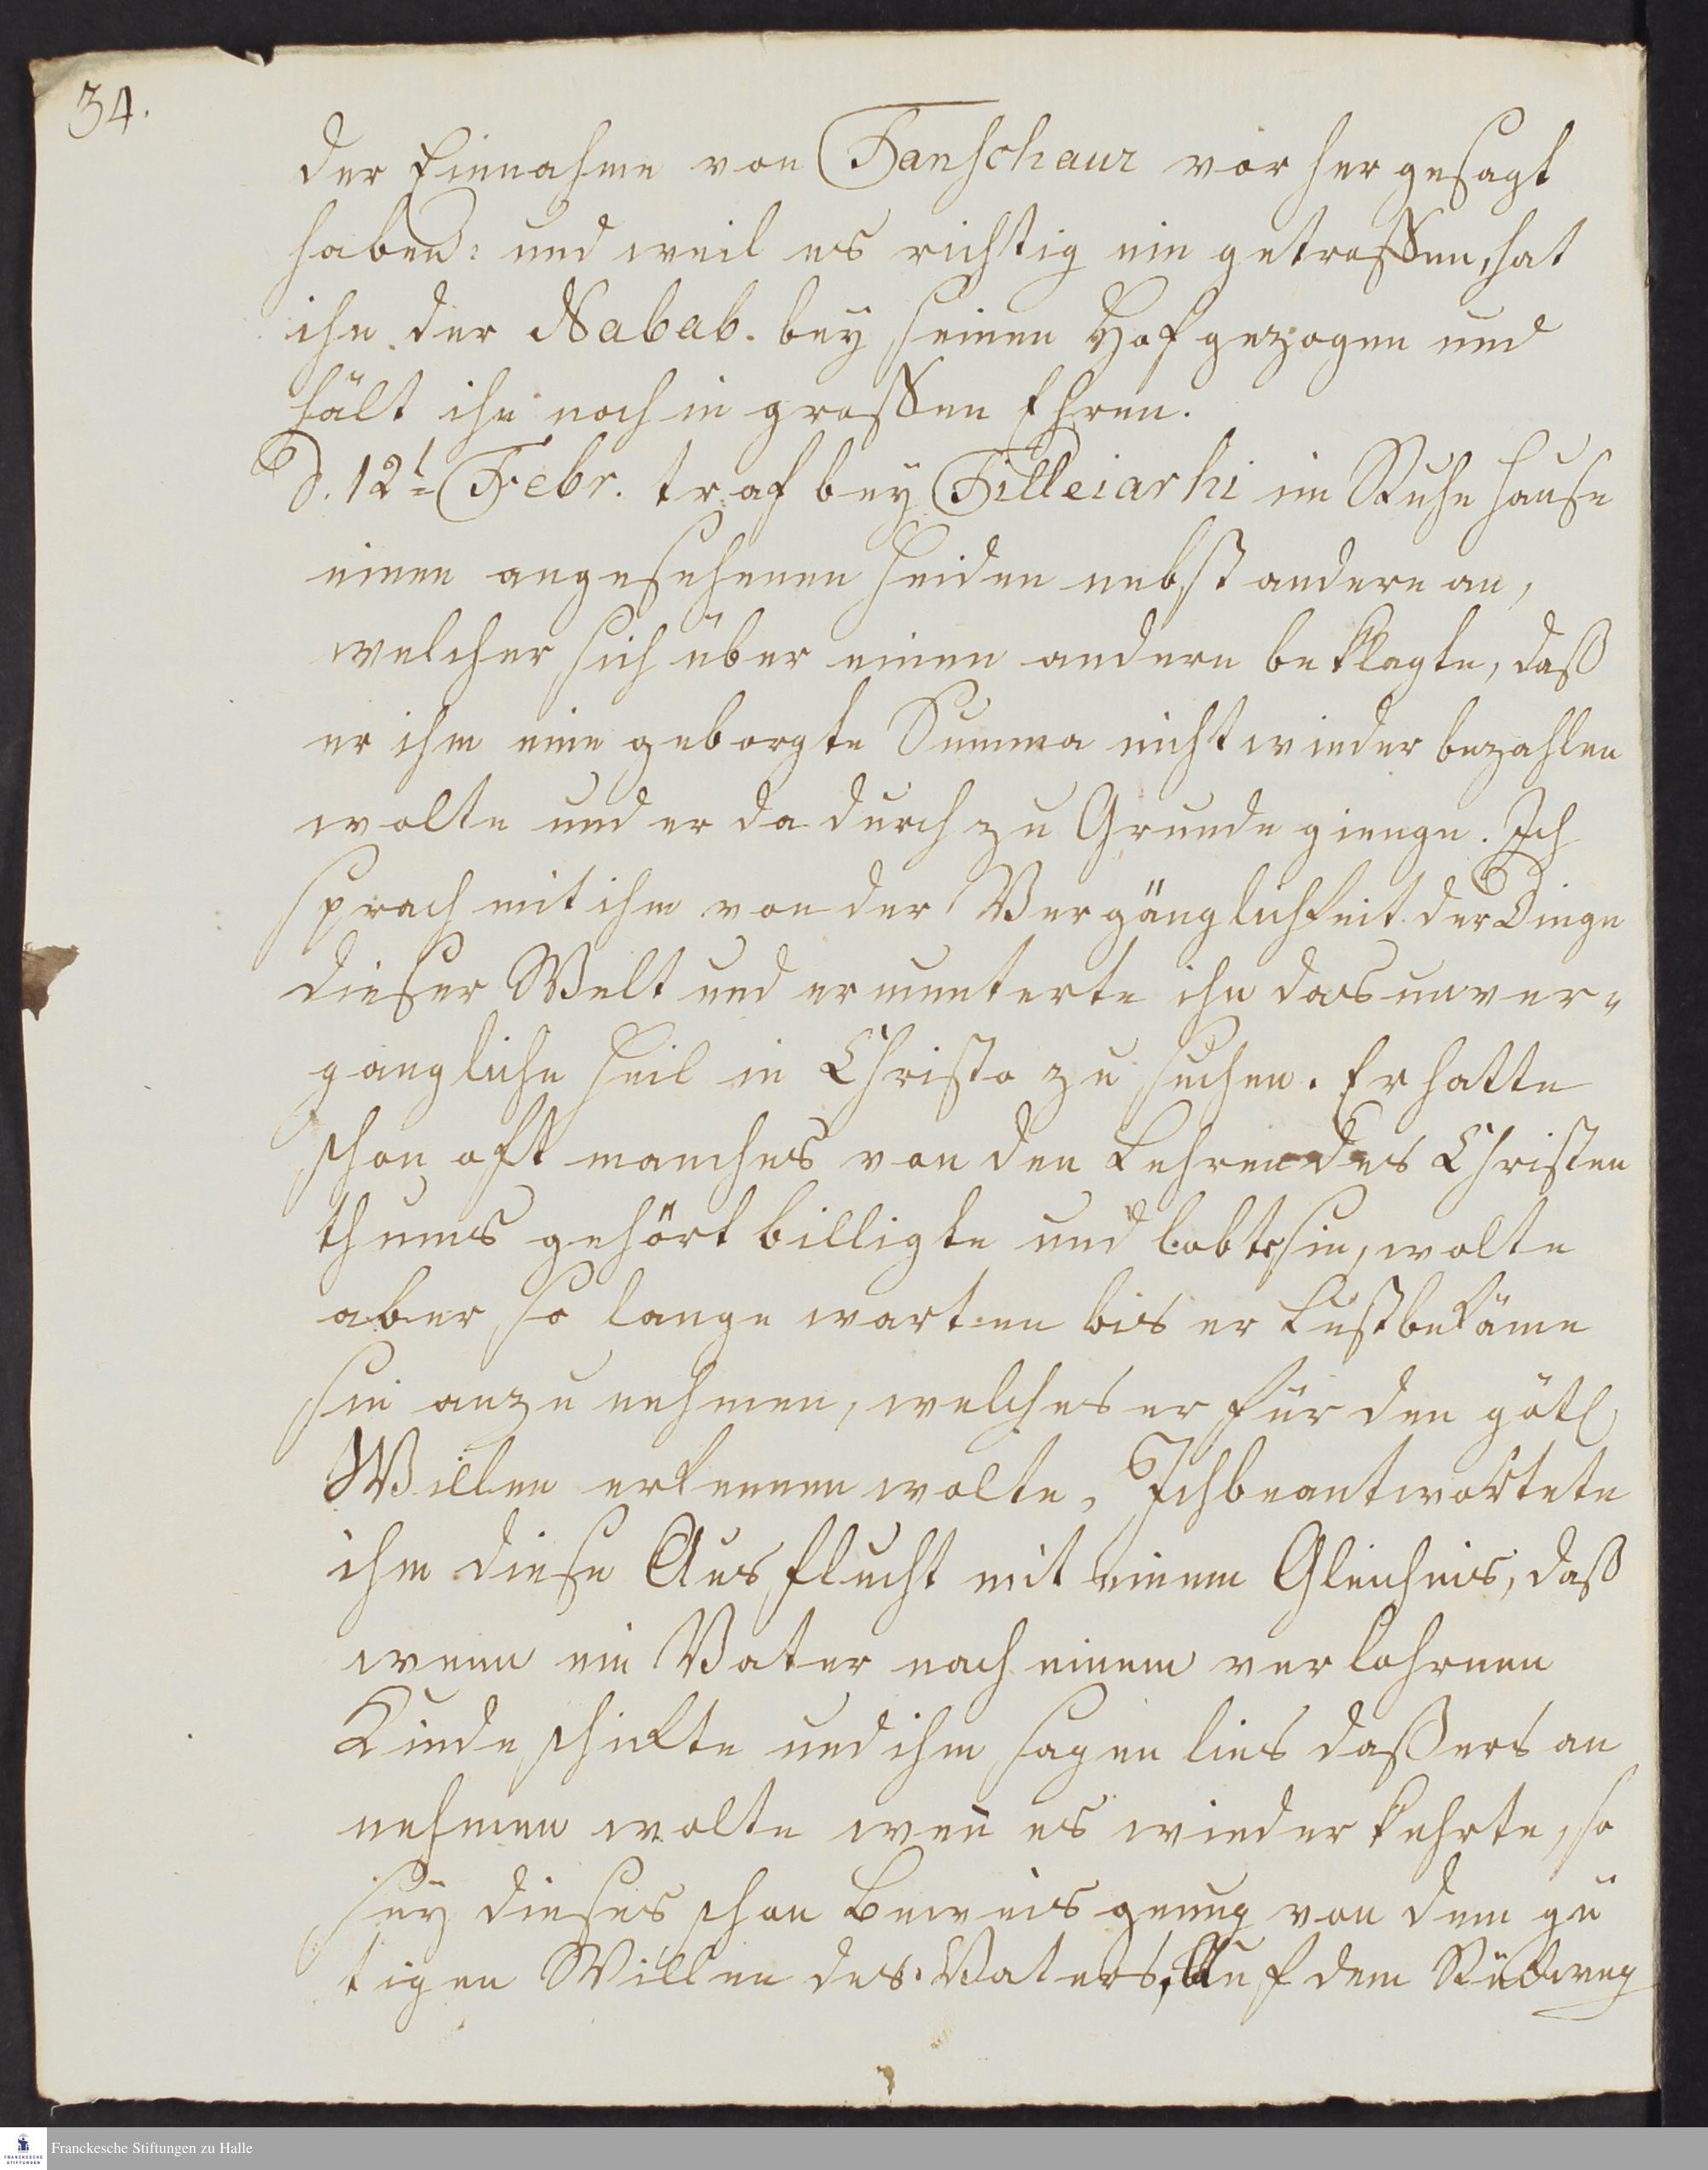 34.
der Einnahme von Tanschaur vorher gesagt
haben: und weil es richtig ein getroffen, hat
ihn der Nabab. bey seinen Hof gezogen und
hält ihn noch in grossen Ehren.
d. 12t Febr. traf bey Tilleiarhi im Ruhe Hause
einen angesehenen Heiden nebst andern an,
welcher sich über einen andern beklagte, daß
er ihm eine geborgte Summa nicht wieder bezahlen
wolte und er dadurch zu Grunde gienge. Ich
sprach mit ihm von der Vergänglichkeit der Dinge
dieser Welt und ermunterte ihn das unver-
gangliche Heil in Christo zu suchen. Er hatte
schon oft manches von den Lehren des Christen
thums gehört billigte und lobte sie, wolte
aber so lange warten bis er Lust bekäme
sie anzunehmen, welches er für den götl
Willen erkennen wolte. Ich beantwortete
ihm diese Ausflucht mit einem Gleichnis, daß
wenn ein Vater nach einem verlohrnen
Kinde schickte und ihm sagen lies daß ers an
nehmen wolte wen̄ es wieder kehrte, so
sey dieses schon Beweis genug von dem gü
tigen Willen des Vaters, Auf dem Rückweg
Franckesche Stiftungen zu Halle